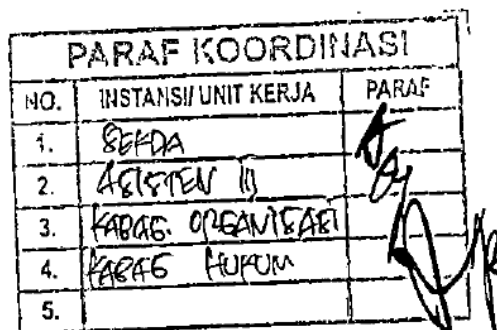 PARAF KOORDINASI
NO. INSTANSI/UNIT KERJA PARAF
1. SEKDA
2. ASISTEN III
3. KABAG. ORGANISASI
4. KABAG HUKUM
5.